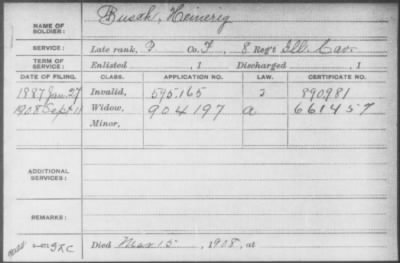 NAME OF SOLDIER: Busak, Heinerig
SERVICE: Late rank, P Co. F, 8 Reg't Ill. Cav.
TERM OF SERVICE: Enlisted , 1 Discharged , 1
DATE OF FILING. CLASS. APPLICATION NO. LAW. CERTIFICATE NO.
1887 Jan. 27 Invalid, 595.165 2 890981
1908 Sept. 11 Widow, 904197 a 661457
Minor,
ADDITIONAL SERVICES:
REMARKS:
Died Mar 15, 1908, at